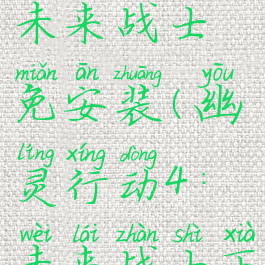 未来战士
miǎn ān zhuāng yōu
免安装(幽
líng xíng dòng
灵行动4:
wèi lái zhàn shì xià
未来战士下